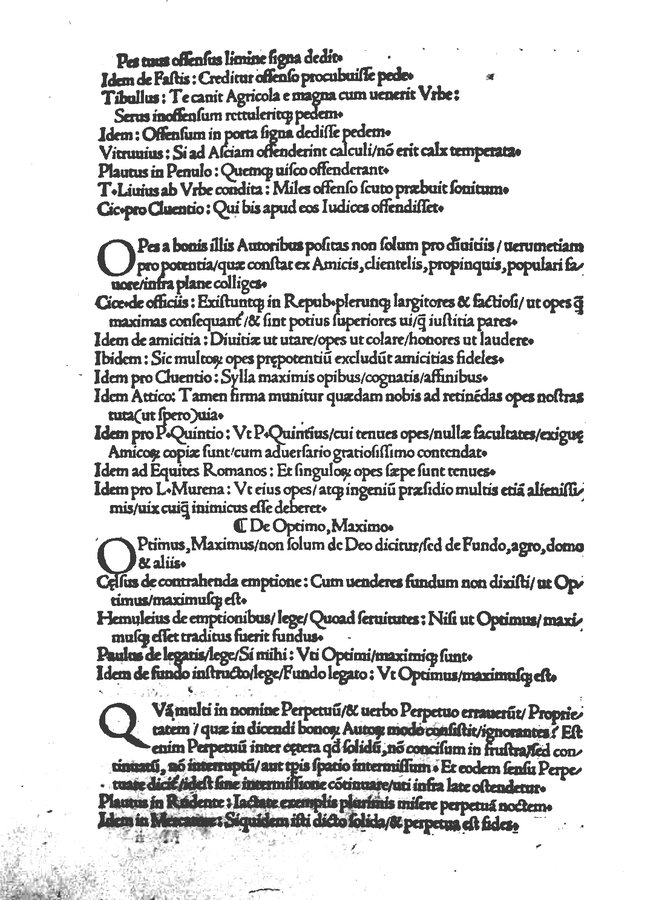 Pes tuus offensus limine signa dedit.
Idem de Fastis: Creditur offenso procubuisse pede.
Tibullus: Te canit Agricola e magna cum uenerit Vrbe:
Serus inoffensum rettuleritqꝫ pedem.
Idem: Offensum in porta signa dedisse pedem.
Vitruuius: Si ad Asciam offenderint calculi/nō erit calx temperata.
Plautus in Penulo: Quemqꝫ uisco offenderant.
T. Liuius ab Vrbe condita: Miles offenso scuto præbuit sonitum.
Cic. pro Cluentio: Qui bis apud eos Iudices offendisset.
OPes a bonis illis Autoribus positas non solum pro diuitiis/uerumetiam
pro potentia/quæ constat ex Amicis, clientelis, propinquis, populari fa-
uore/infra plane colliges.
Cice. de officiis: Existuntqꝫ in Repub. plerunqꝫ largitores & factiosi/ut opes q̄
maximas consequant᷑/& sint potius superiores ui/q̄ iustitia pares.
Idem de amicitia: Diuitiæ ut utare/opes ut colare/honores ut laudere.
Ibidem: Sic multoꝝ opes prępotentiū excludūt amicitias fideles.
Idem pro Cluentio: Sylla maximis opibus/cognatis/affinibus.
Idem Attico: Tamen firma munitur quædam nobis ad retinēdas opes nostras
tuta(ut spero)uia.
Idem pro P. Quintio: Vt P. Quintius/cui tenues opes/nullæ facultates/exiguę
Amicoꝝ copiæ sunt/cum aduersario gratiosissimo contendat.
Idem ad Equites Romanos: Et singuloꝝ opes sæpe sunt tenues.
Idem pro L. Murena: Vt eius opes/atqꝫ ingeniū præsidio multis etiā alienissi-
mis/uix cuiq̄ inimicus esse deberet.
¶ De Optimo, Maximo.
OPtimus, Maximus/non solum de Deo dicitur/sed de Fundo, agro, domo
& aliis.
Cęlsus de contrahenda emptione: Cum uenderes fundum non dixisti/ut Op-
timus/maximusqꝫ est.
Hemuleius de emptionibus/lege/Quoad seruitutes: Nisi ut Optimus/maxi-
musqꝫ esset traditus fuerit fundus.
Paulus de legatis/lege/Si mihi: Vti Optimi/maximiqꝫ sunt.
Idem de fundo instructo/lege/Fundo legato: Vt Optimus/maximusqꝫ est.
QVā multi in nomine Perpetuū/& uerbo Perpetuo errauerūt/Proprie-
tatem/quæ in dicendi bonoꝝ Autoꝝ modo consistit/ignorantes? Est
enim Perpetuū inter cętera qd solidū, nō concisum in frustra/sed con-
tinuatū, nō interruptū/aut tpis spatio intermissum. Et eodem sensu Perpe-
tuare dicit᷑/idest sine intermissione cōtinuare/uti infra late ostendetur.
Plautus in Rudente: Iactate exemplis plurimis misere perpetuā noctem.
Idem in Mercatore: Siquidem isti dicto solida/& perpetua est fides.